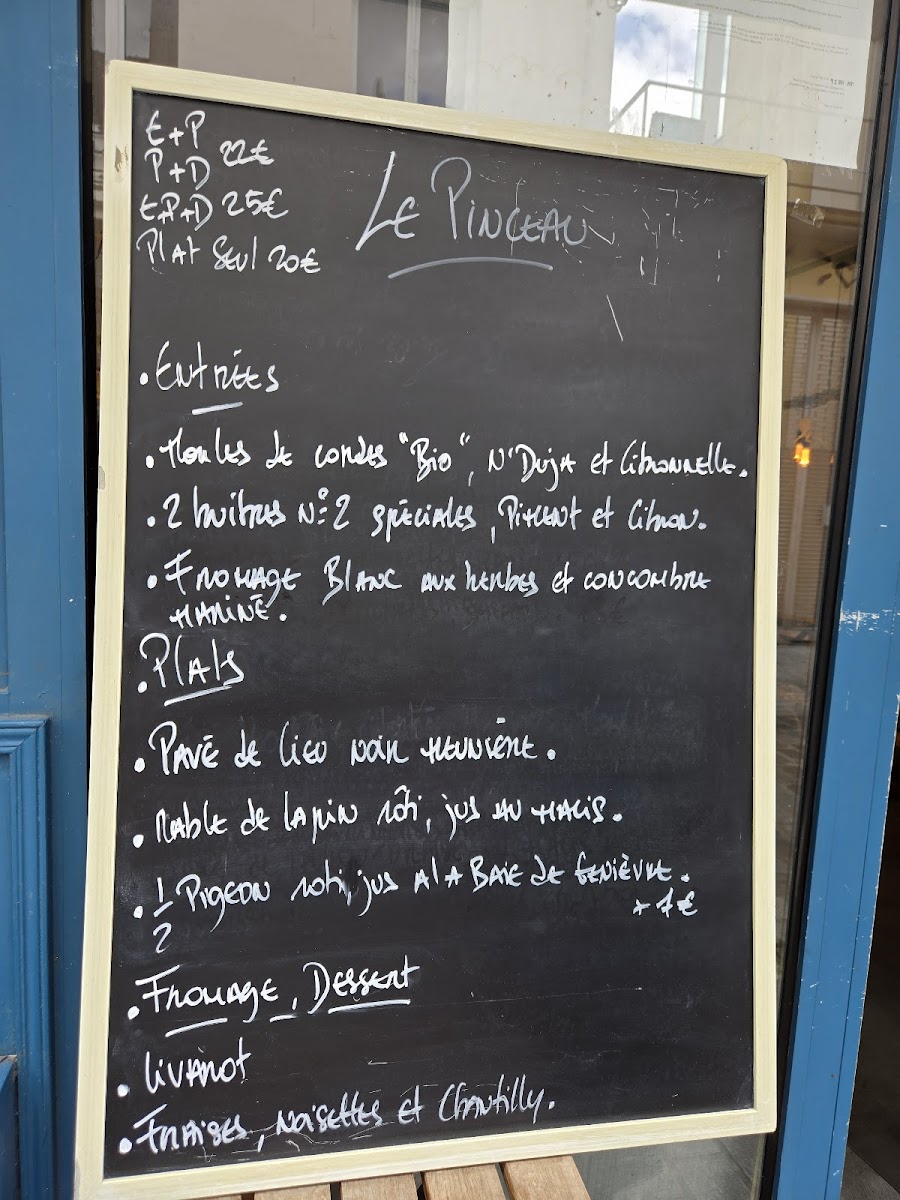 E+P
P+D 22€
E+P+D 25€
Plat Seul 20€
Le Pinceau
• Entrées
• Moules de cordes "Bio", N'Duja et Citronnelle.
• 2 huitres N°2 spéciales, Piment et Citron.
• Fromage Blanc aux herbes et concombre
mariné.
• Plats
• Pavé de lieu noir meunière.
• Rable de lapin rôti, jus au macis.
• 1/2 Pigeon roti, jus a la Baie de Genièvre.
+ 4€
• Fromage, Dessert
• Livarot
• Fraises, Noisettes et Chantilly.